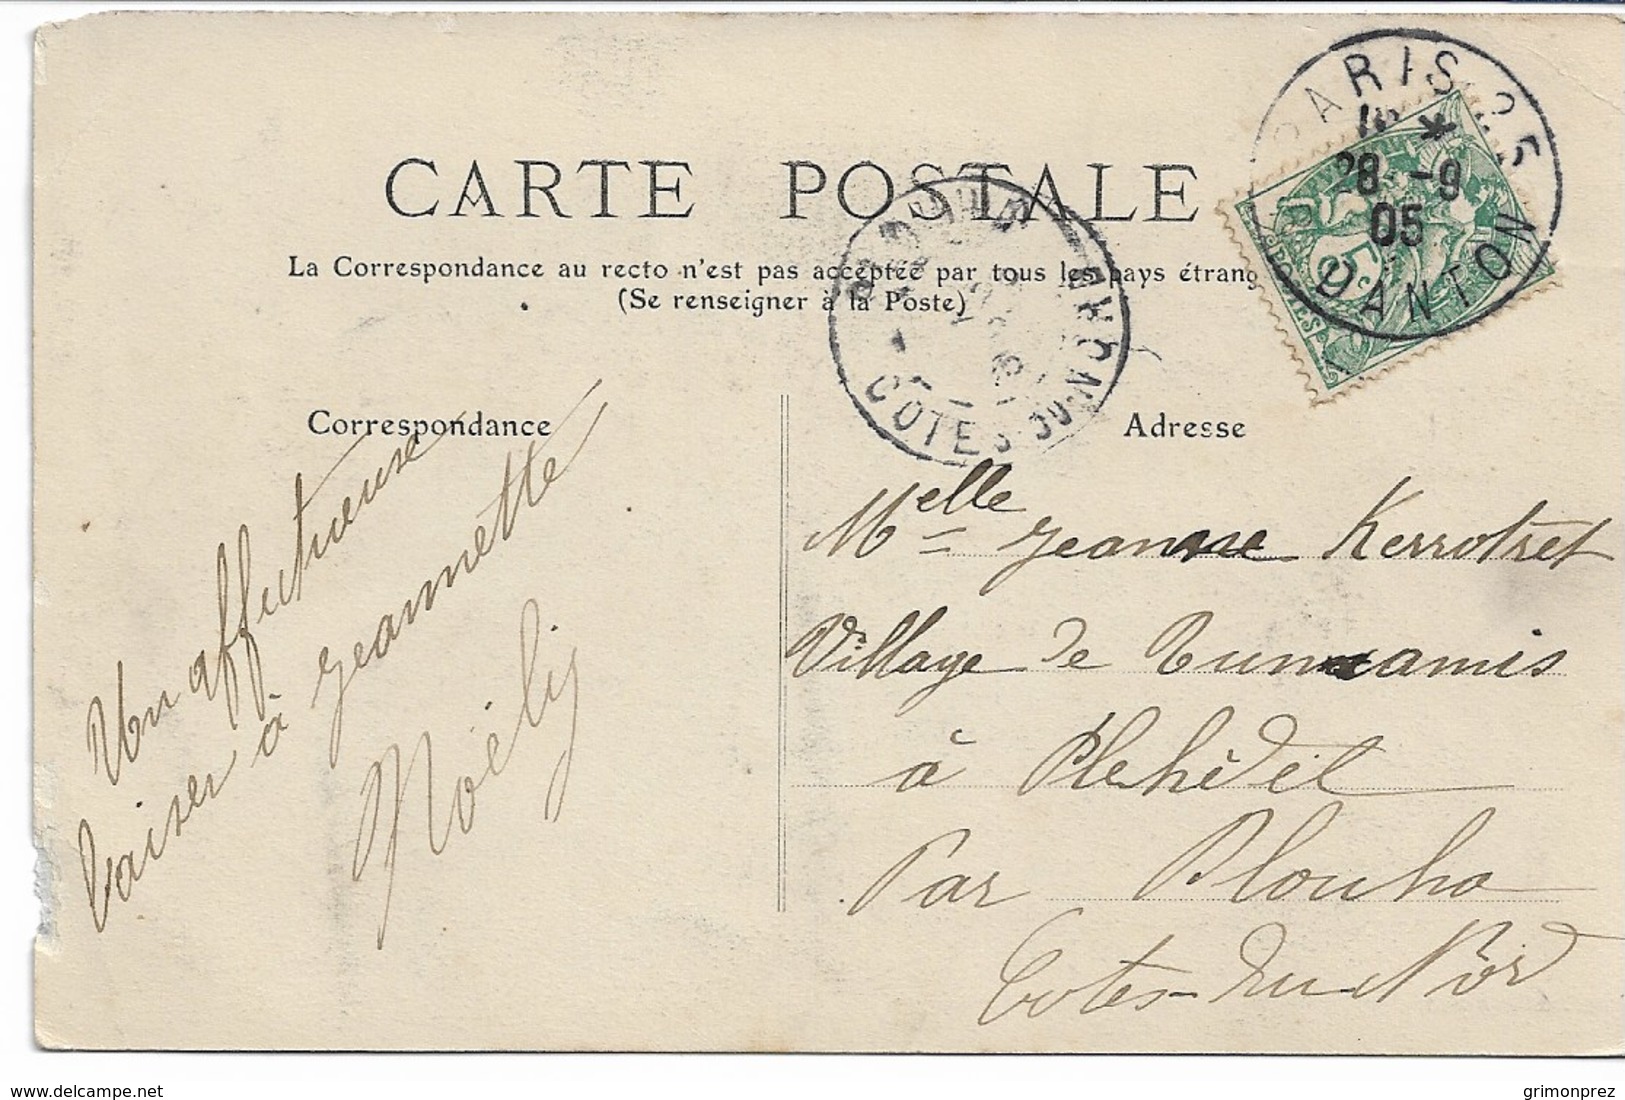 CARTE POSTALE
La Correspondance au recto n'est pas acceptée par tous les pays étrang
(Se renseigner à la Poste)
PARIS 25
28 -9
05
DANTON
COTES DU NORD
POSTES
Correspondance
Adresse
Un affectueuse
baiser à Jeannette
Noëly
Melle Jeanne Kerrotret
Village de
à Pléhédel
Par Plouha
Cotes-du-Nord
delcampe.net
grimonprez